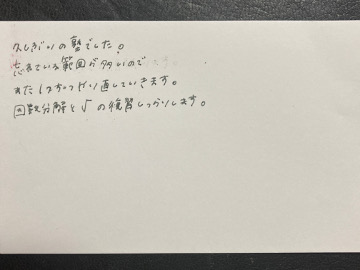 久しぶりの塾でした。
忘れている範囲が多いので
またしっかりやり直していきます。
因数分解と√の復習しっかりします。